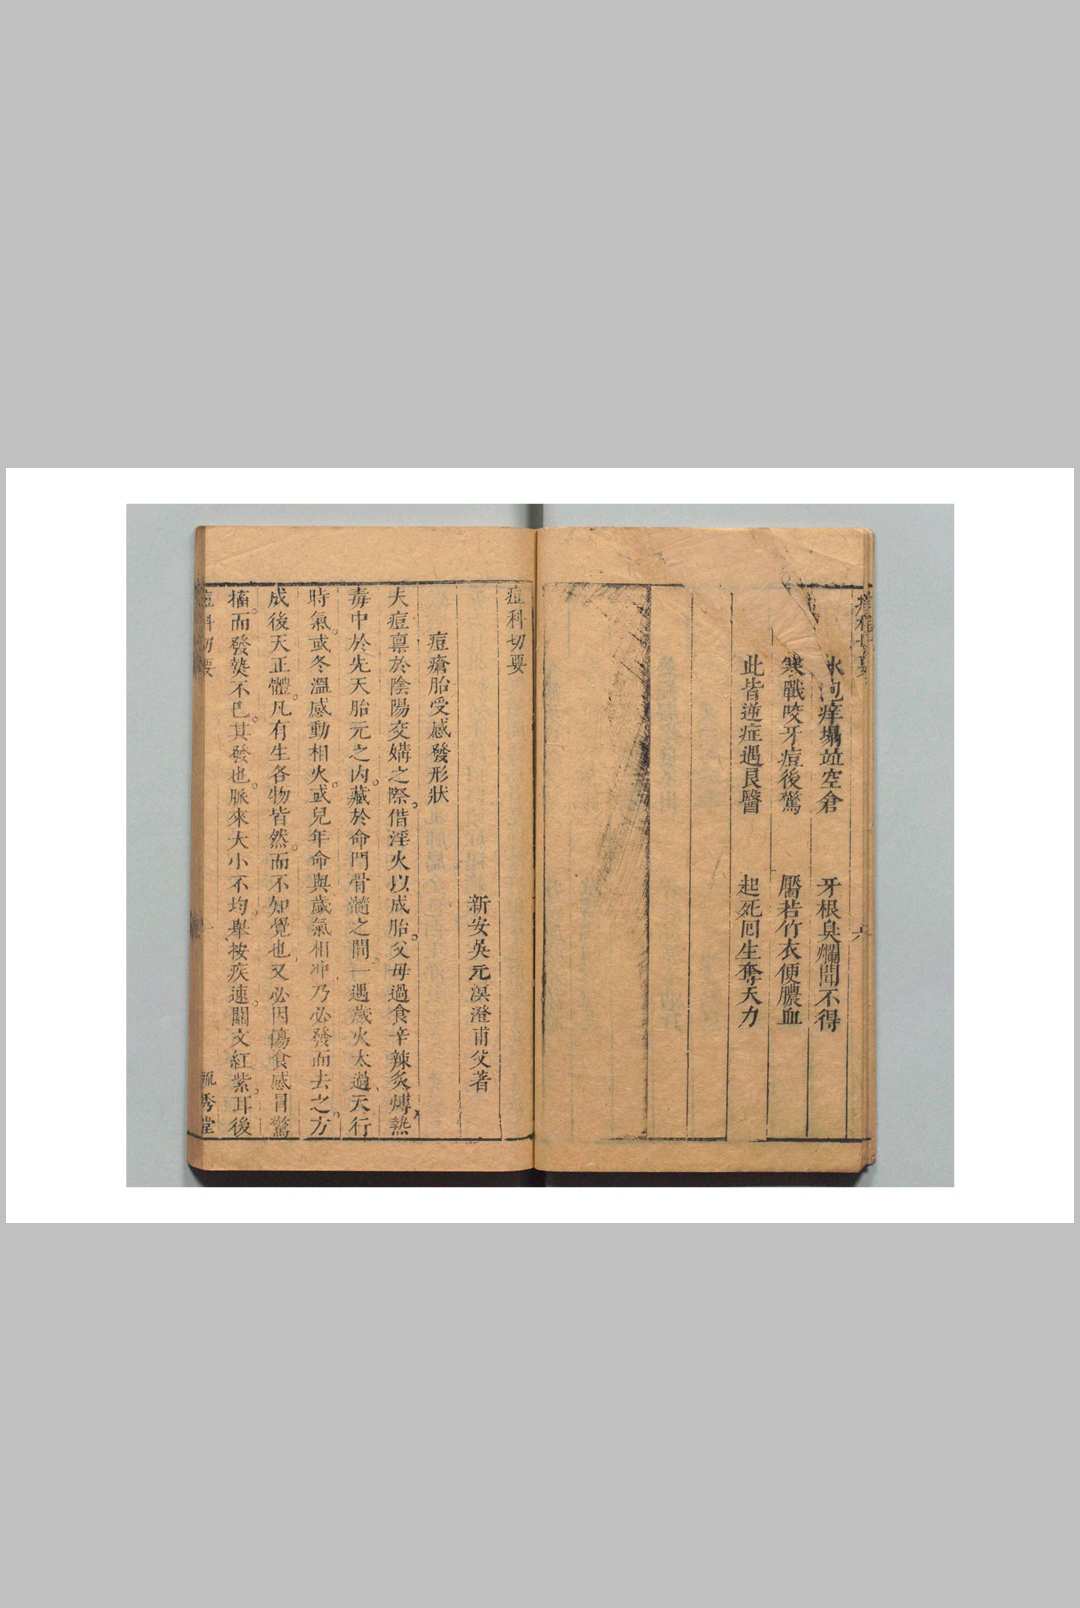 痘科切要
水泡痒塌並空倉　牙根臭爛聞不得
寒戰咬牙痘後驚　靨若竹衣便膿血
此皆逆症遇良醫　起死回生奪天力
六
痘科切要
新安吳元溟澄甫父著
痘瘡胎受感發形狀
夫痘稟於陰陽交媾之際借淫火以成胎父母過食辛辣炙煿熱
毒中於先天胎元之内藏於命門骨髓之間一遇歲火太過天行
時氣或冬溫感動相火或兒年命與歲氣相冲乃必發而去之方
成後天正體凡有生各物皆然而不知覺也又必因傷食感冒驚
搐而發熱不已其發也脈來大小不均舉按疾速關文紅紫耳後
痘科切要
一
毓秀堂